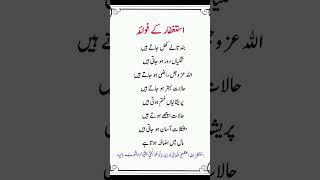 استغفار کے فوائد
بند تالے کھل جاتے ہیں
تنگیاں دور ہو جاتی ہیں
اللہ عزوجل راضی ہو جاتے ہیں
حالات بہتر ہو جاتے ہیں
پریشانیاں ختم ہوتی ہیں
حالات اچھے ہوتے ہیں
مشکلات آسان ہو جاتی ہیں
مال میں اضافہ ہوتا ہے